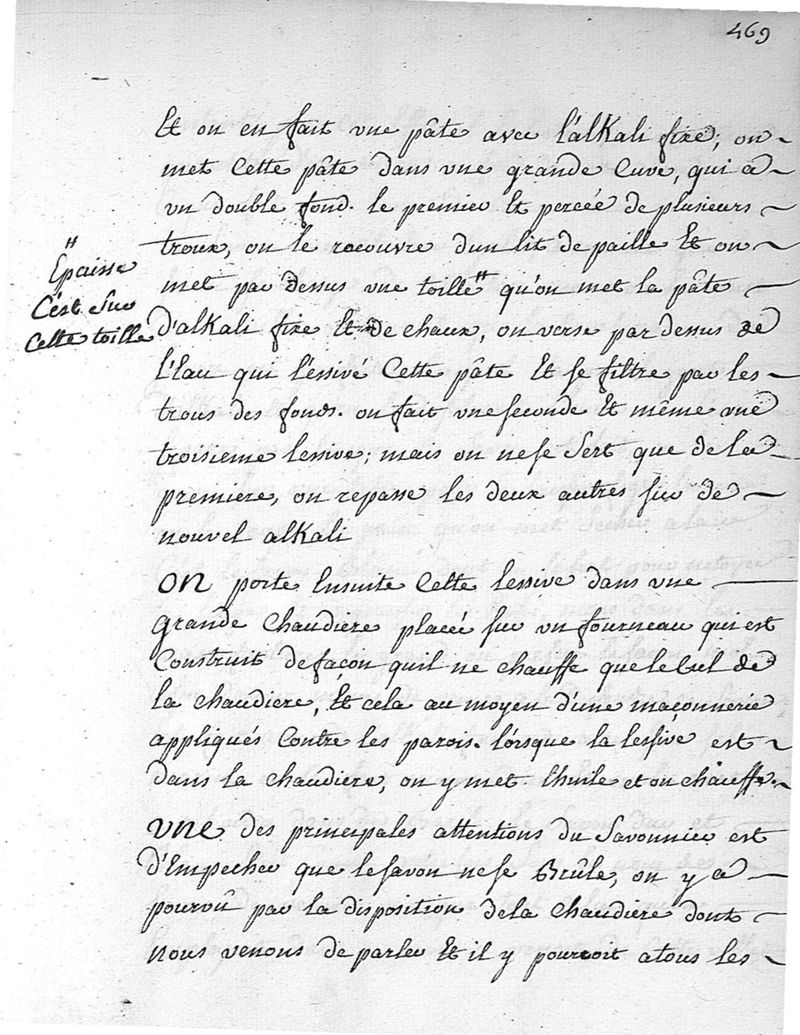 469
Et on en fait vne pâte avec l'alKali fixe; on
met Cette pâte dans vne grande Cuve, qui a
vn double fond. le premier Et percée de plusieurs
troux, on le recouvre dun lit de paille Et on
met par dessus vne toille" qu'on met la pâte
" Epaisse
C'est sur
Cette toille
D'alkali fixe Et de chaux, on verse par dessus de
l'Eau qui léssivé Cette pâte Et se filtre par les
trous des fonds. on fait vne seconde Et même vne
troisieme lessive; mais on ne se Sert que de la
premiere, on repasse les deux autres sur de
nouvel alKali
On porte Ensuite Cette lessive dans vne
Grande Chaudiere placée sur vn fourneau qui est
Construit de façon quil ne chauffe que le Cul de
la chaudiere, Et cela au moyen d'une maçonnerie
appliqués Contre les parois. lórsque la lessive est
dans la chaudiere, on y met l'huile et on chauffe.
Vne des principales attentions du Savonnier est
d'Empecher que le savon ne se Brûle, on y a
pourvû par la disposition de la Chaudiere dont
nous venons de parler Et il y pourvoit a tous les